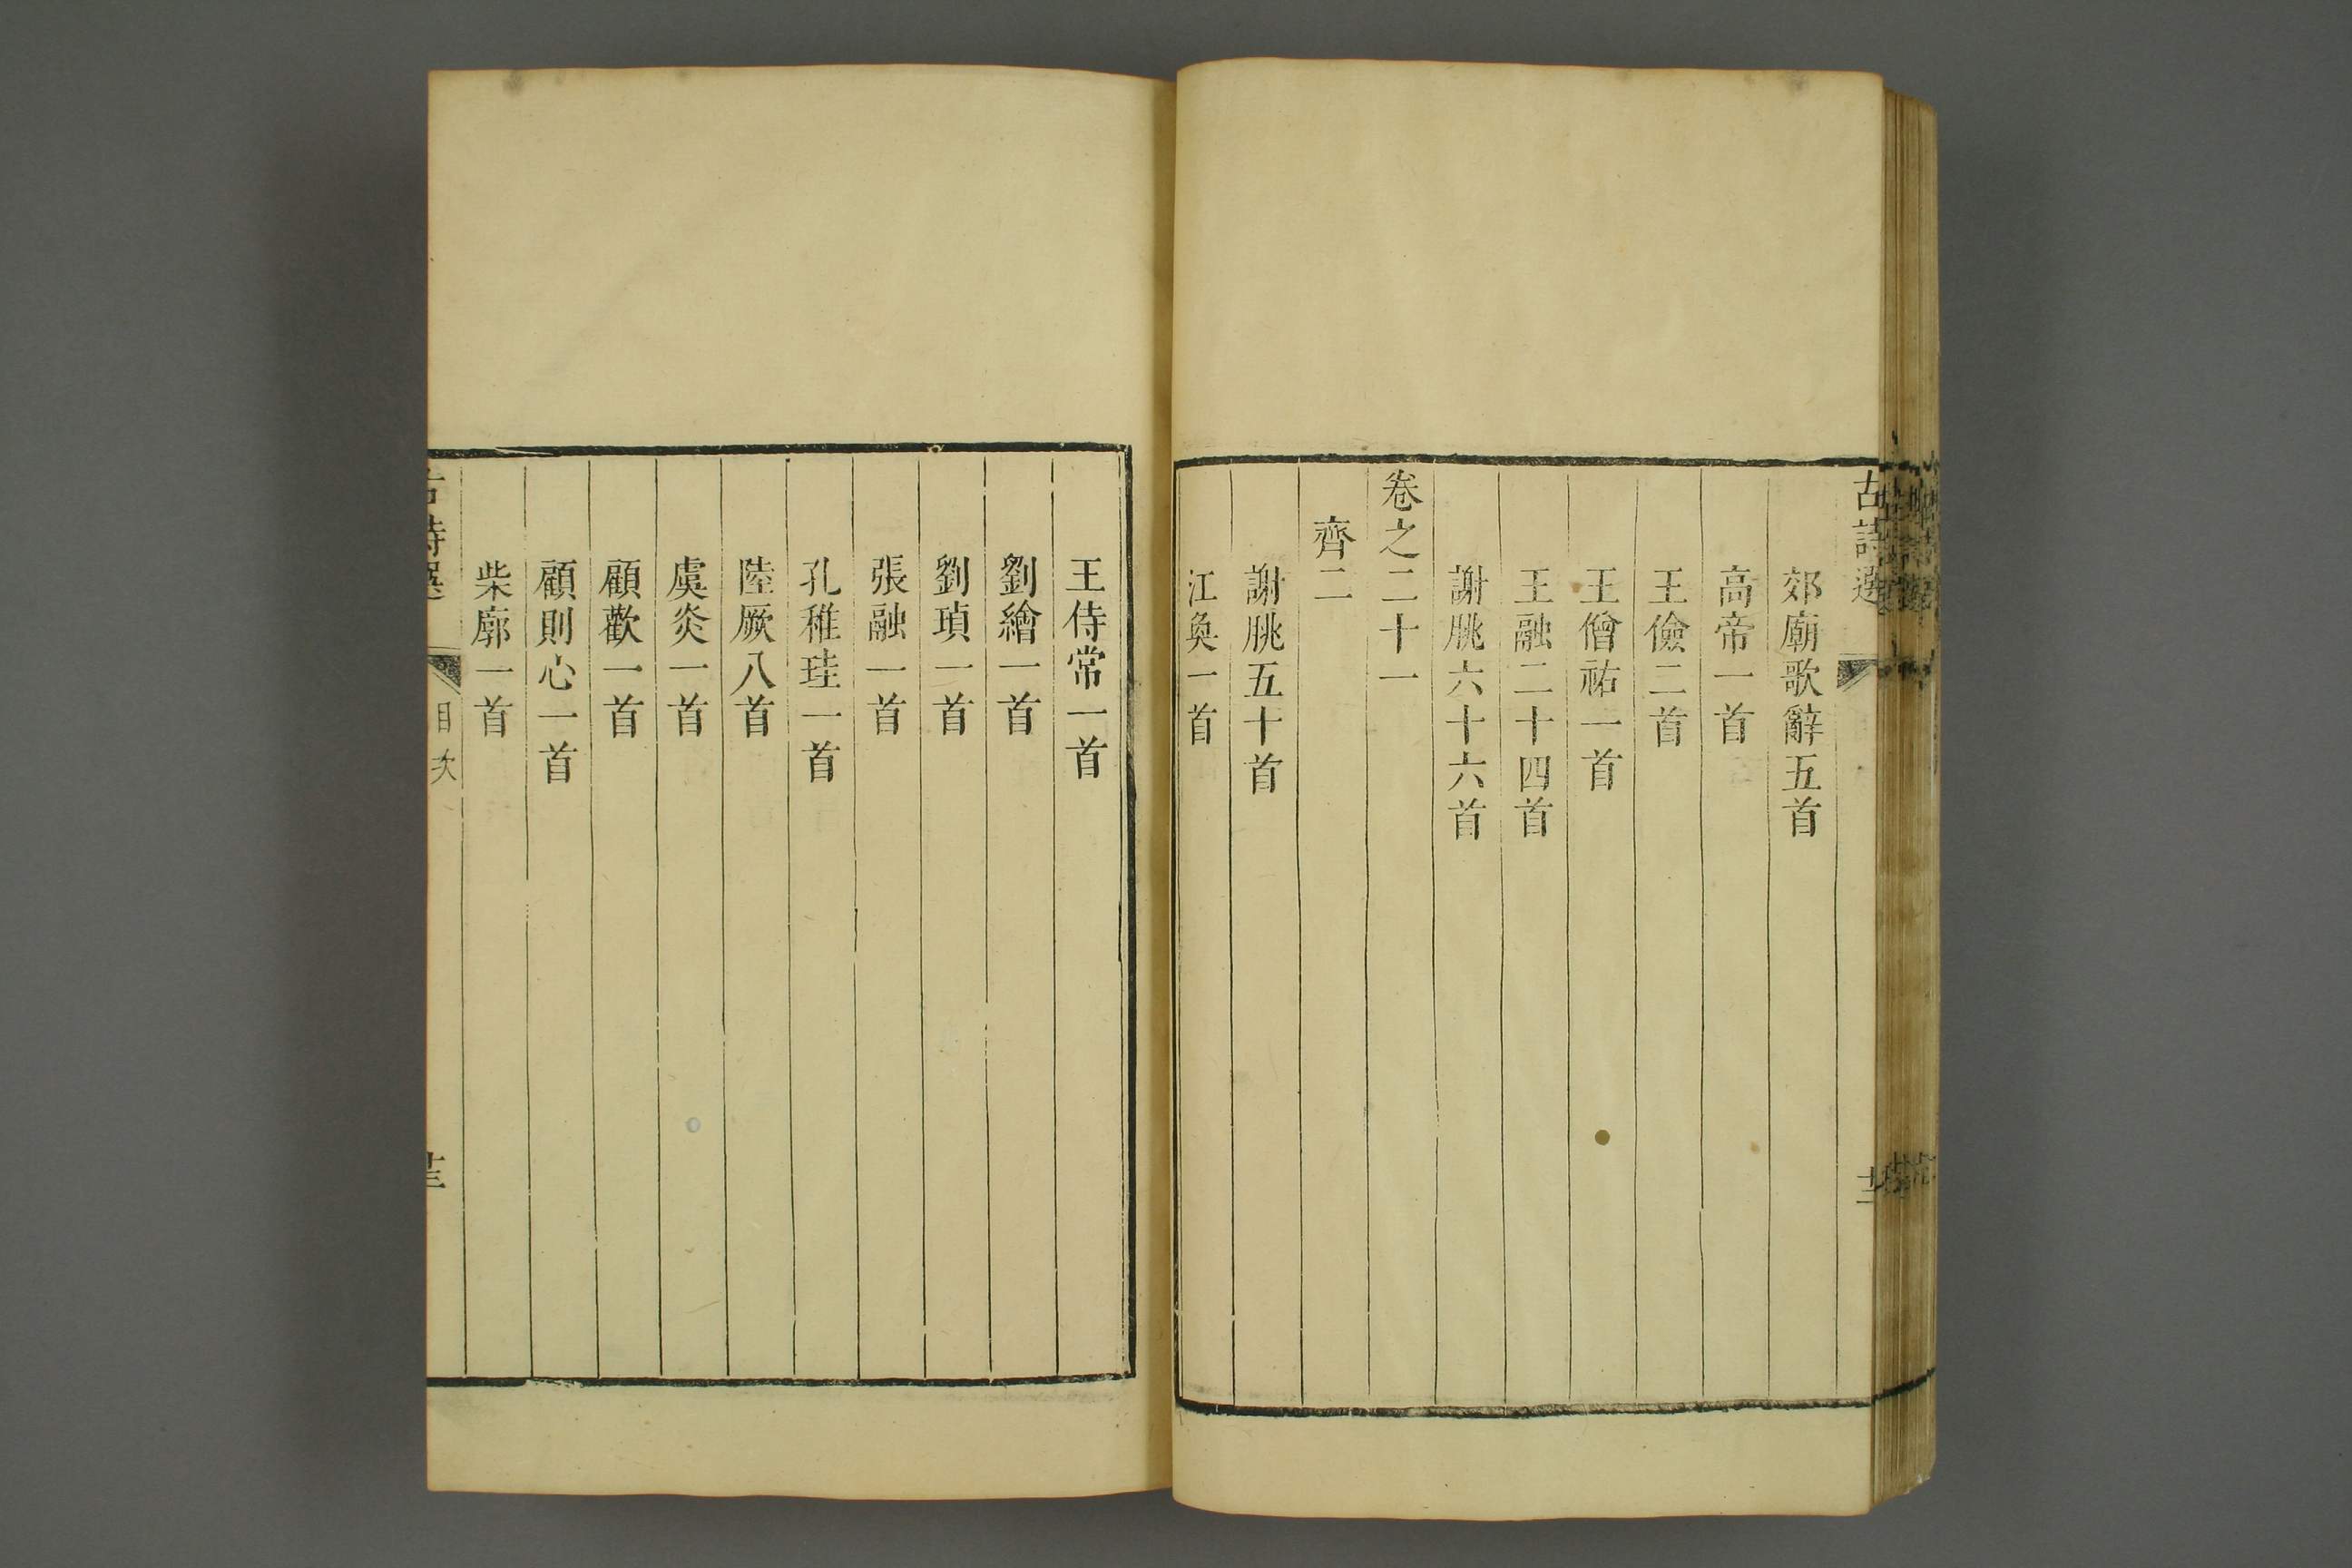 古詩選
郊廟歌辭五首
高帝一首
王儉二首
王僧祐一首
王融二十四首
謝朓六十六首
卷之二十一
齊二
謝朓五十首
江奐一首
王侍常一首
劉繪一首
劉瑱一首
張融一首
孔稚珪一首
陸厥八首
虞炎一首
顧歡一首
顧則心一首
柴廓一首
古詩選
目次